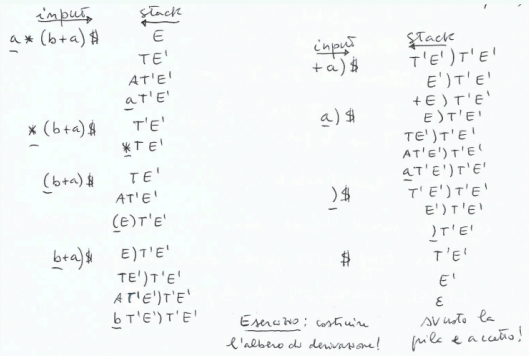 input stack
a * (b+a) $ E
TE'
AT'E'
aT'E'
* (b+a) $ T'E'
*TE'
(b+a) $ TE'
AT'E'
(E)T'E'
b+a) $ E)T'E'
TE')T'E'
AT'E')T'E'
bT'E')T'E'
input stack
+a) $ T'E')T'E'
E')T'E'
+E)T'E'
a) $ E)T'E'
TE')T'E'
AT'E')T'E'
aT'E')T'E'
) $ T'E')T'E'
E')T'E'
)T'E'
$ T'E'
E'
ε
Esercizio: costruire
l'albero di derivazione!
svuoto la
pila e accetto!